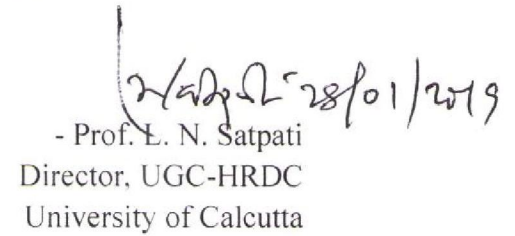 28/01/2019
- Prof. L. N. Satpati
Director, UGC-HRDC
University of Calcutta